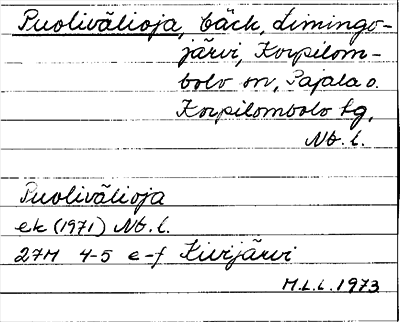 Puolivälioja, bäck, Limingo-
järvi, Korpilom-
bolo sn, Pajala o.
Korpilombolo tg,
Nb. l.
Puolivälioja
ek (1971) Nb. l.
27M 4-5 e-f Kivijärvi
M.L.L. 1973